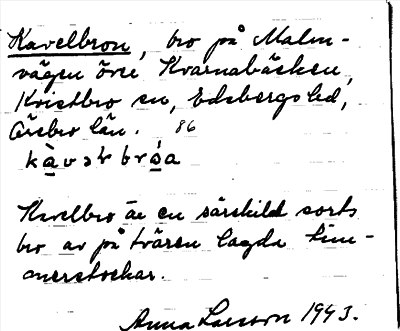 Kavelbron, bro på Malm-
vägen över Kvarnabäcken,
Knistbro sn, Edsbergs hd,
Örebro län. 86
kàvəlbróa
Kavelbro är en särskild sorts
bro av på tvären lagda tim-
merstockar.
Anna Larsson 1943.